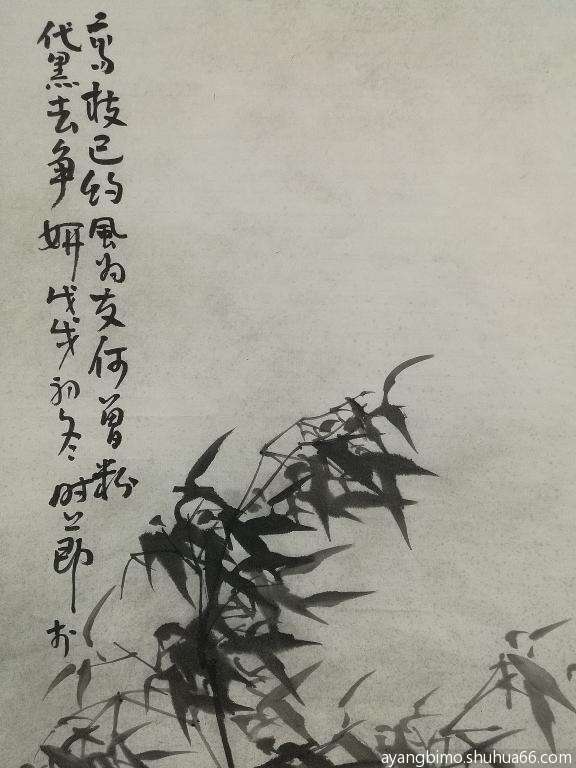 高枝已约風为友何曾粉
黛去争妍 戊戌初冬时節 於
ayangbimo.shuhua66.com